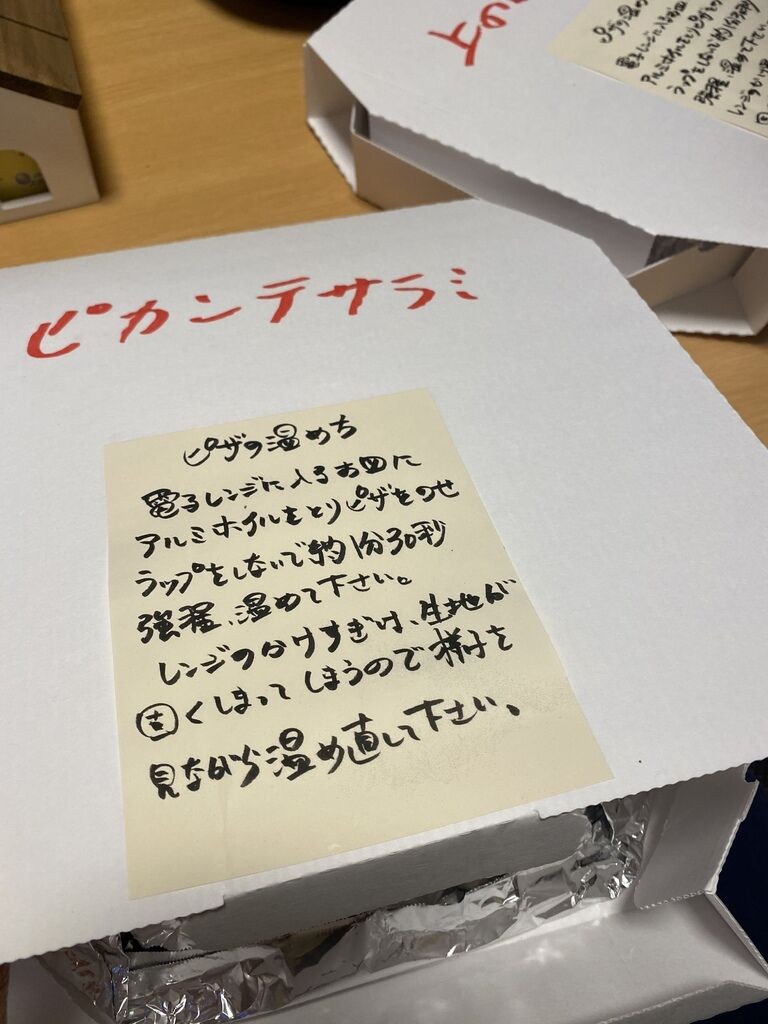 ピザの温め
電子レンジに入るお皿
アルミホイルをとりピザを
ラップをしないで約1分30秒
強程、温めて下さい
レンジのかけ
固
ピカンテサラミ
ピザの温め方
電子レンジに入るお皿に
アルミホイルをとりピザをのせ
ラップをしないで約1分30秒
強程、温めて下さい。
レンジのかけすぎは、生地が
固くしまってしまうので様子を
見ながら温め直して下さい。